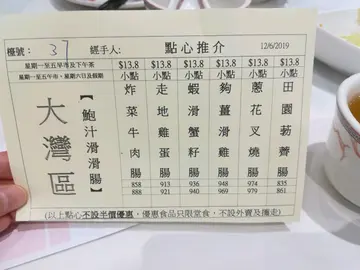 檯號: 37 經手人: 點心推介 12/6/2019
星期一至五早市及下午茶 $13.8 $13.8 $13.8 $13.8 $13.8 $13.8
星期一至五午市,星期六日及假期 小點 小點 小點 小點 小點 小點
大灣區
【鮑汁滑滑腸】
炸菜牛肉腸
走地雞蛋腸
蝦滑蟹籽腸
夠薑滑雞腸
蔥花叉燒腸
田園蒻薺腸
858 913 936 948 974 835
888 921 940 969 979 861
(以上點心不設半價優惠,優惠食品只限堂食,不設外賣及攜走)